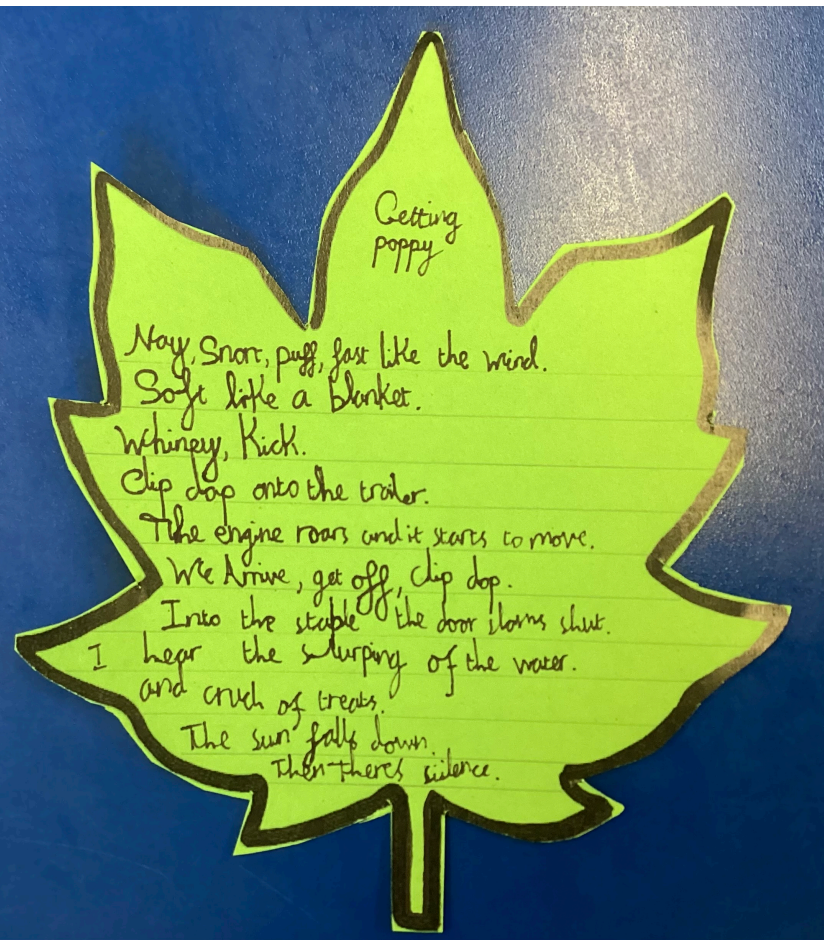 Getting
poppy
Nay, Snort, puff, fast like the wind.
Soft like a blanket.
Whiney, Kick.
Clip clop onto the trailer.
The engine roars and it starts to move.
We Arrive, get off, clip clop.
Into the stable the door slams shut.
I hear the slurping of the water.
and cruch of treats.
The sun falls down.
Then theres silence.